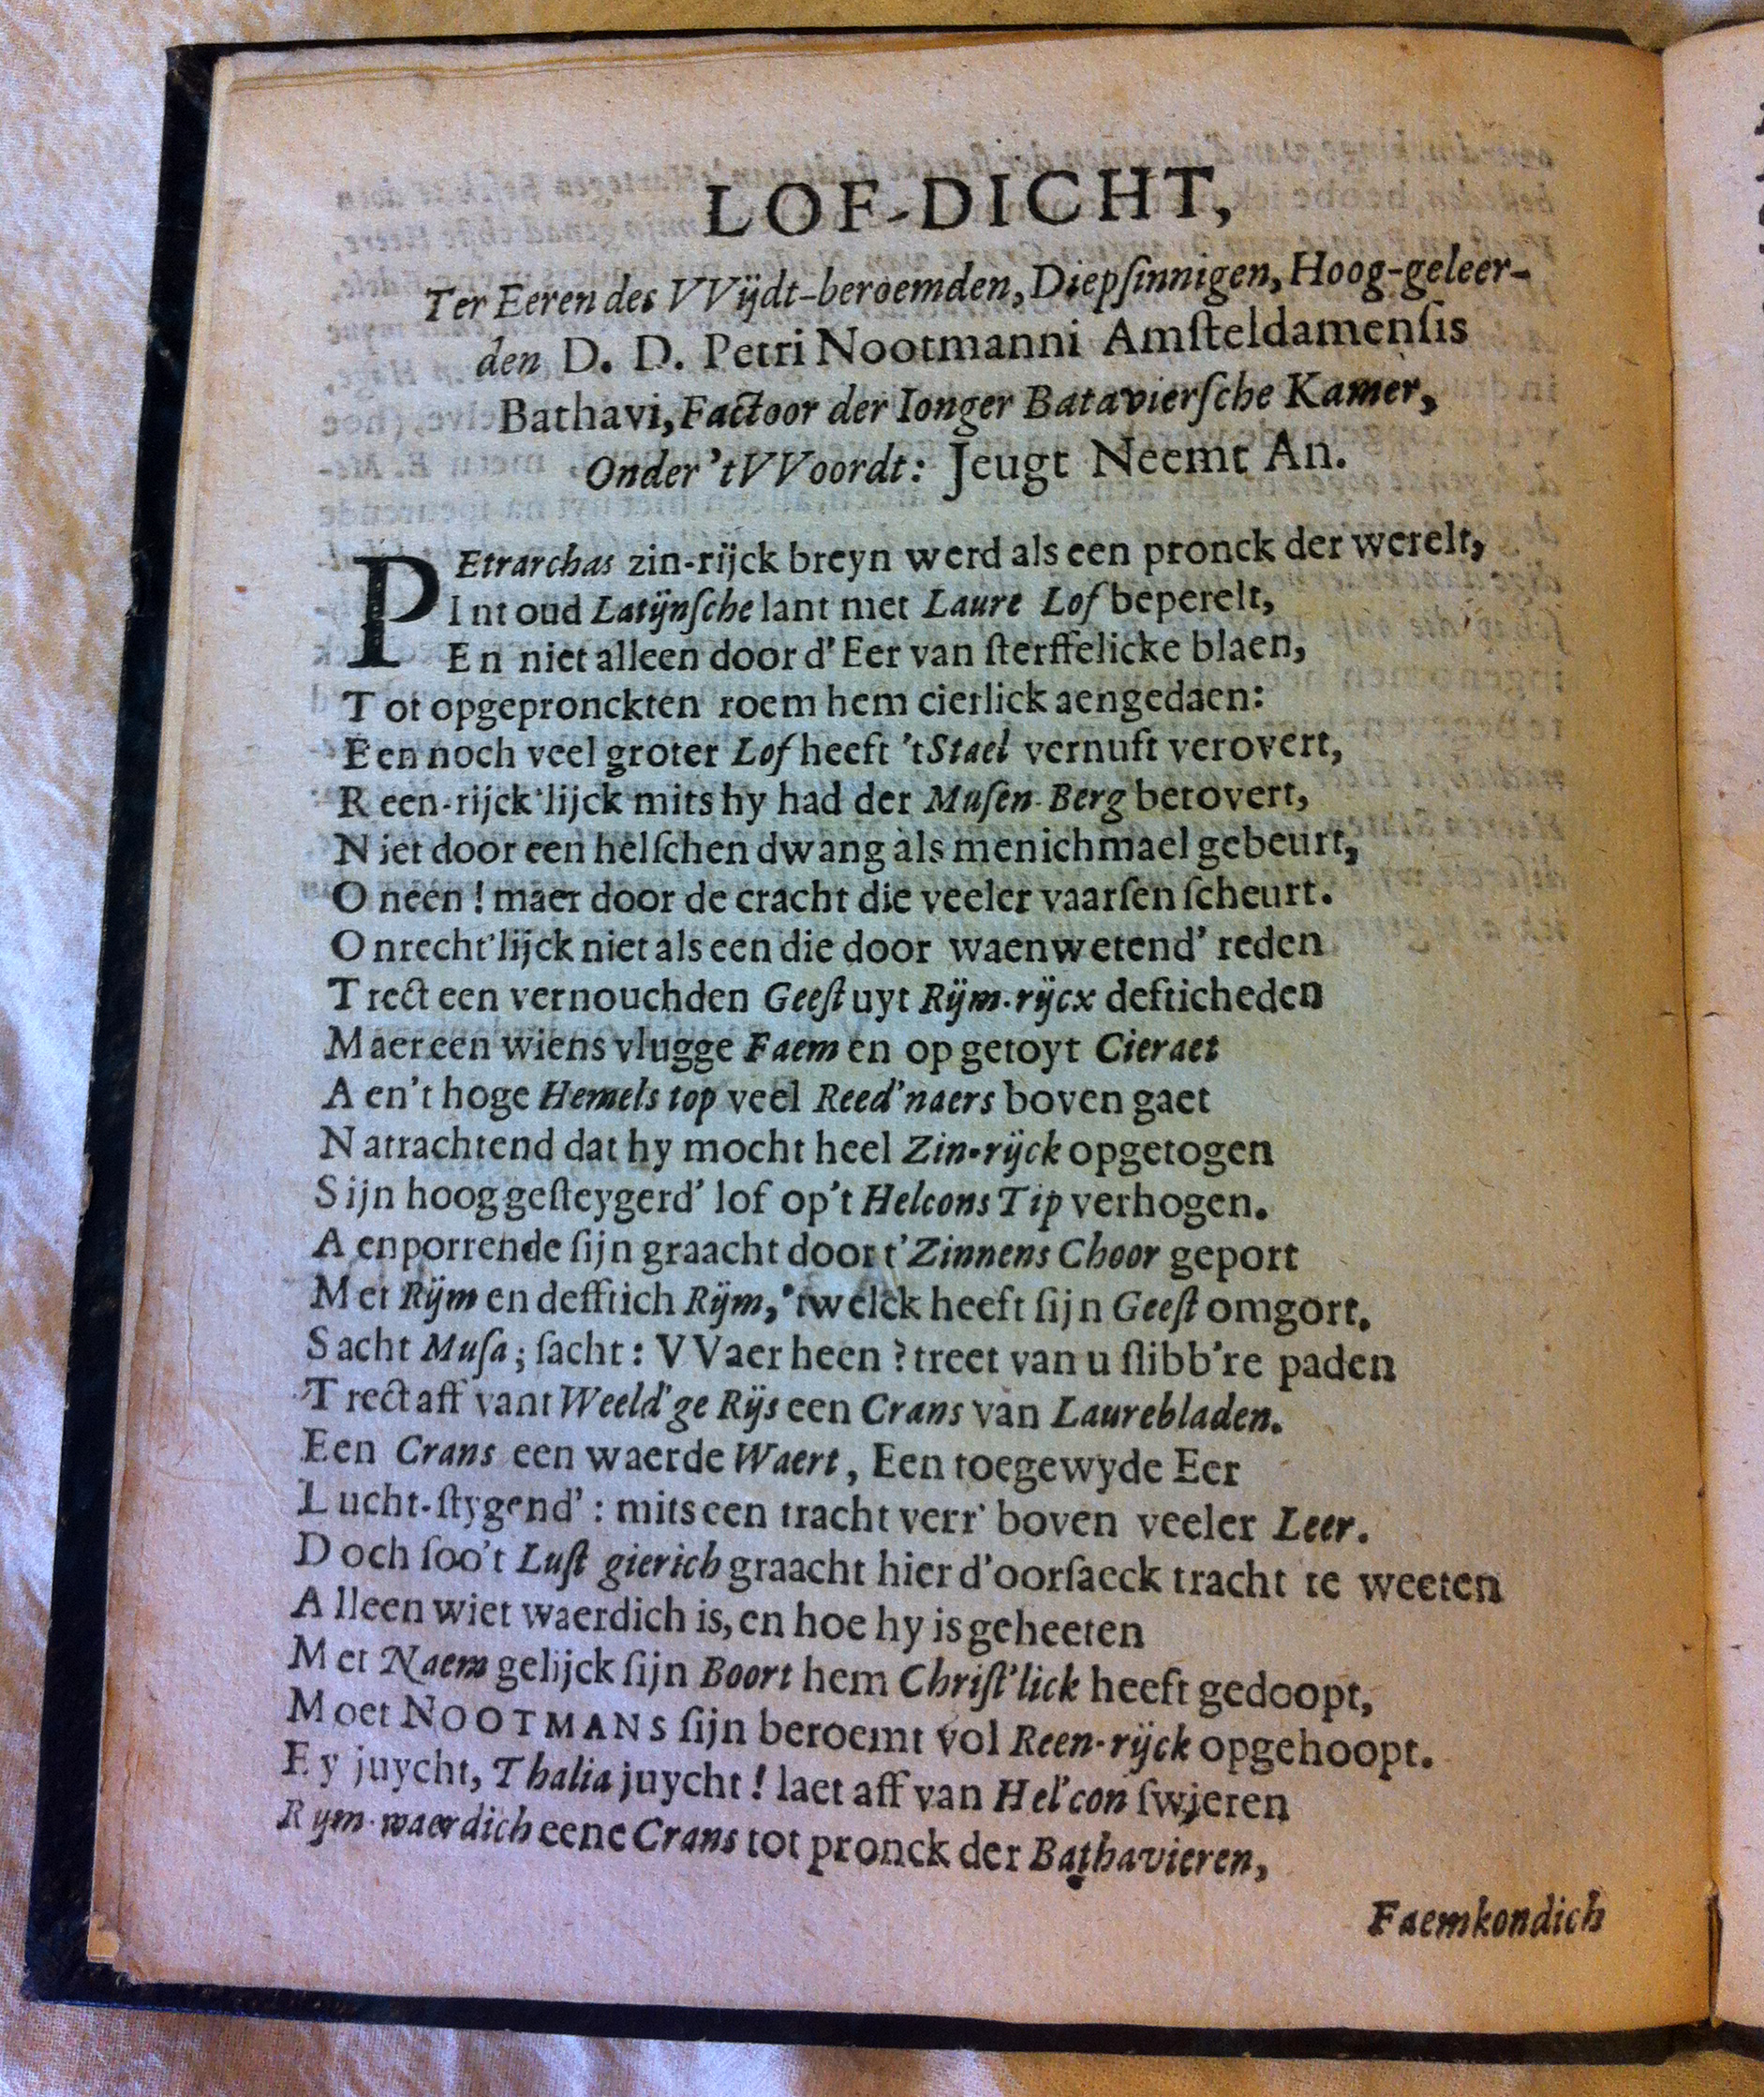 LOF-DICHT,
Ter Eeren des VVijdt-beroemden, Diepſinnigen, Hoog-geleer-
den D. D. Petri Nootmanni Amſteldamenſis
Bathavi, Factoor der Ionger Batavierſche Kamer,
Onder 't VVoordt: Jeugt Neemt An.
PEtrarchas zin-rijck breyn werd als een pronck der werelt,
Int oud Latijnſche lant met Laure Lof beperelt,
En niet alleen door d' Eer van ſterffelicke blaen,
Tot opgepronckten roem hem cierlick aengedaen:
Een noch veel groter Lof heeft 't Stael vernuft verovert,
Reen-rijck'lijck mits hy had der Muſen-Berg betovert,
Niet door een helſchen dwang als menichmael gebeurt,
O neen! maer door de cracht die veeler vaarſen ſcheurt.
Onrecht'lijck niet als een die door waenwetend' reden
Trect een vernouchden Geeſt uyt Rijm-rijcx defticheden
Maer een wiens vlugge Faem en op getoyt Cieraet
Aen't hoge Hemels top veel Reed'naers boven gaet
Natrachtend dat hy mocht heel Zin-rijck opgetogen
Sijn hoog geſteygerd' lof op't Helcons Tip verhogen.
Aenporrende ſijn graacht door t' Zinnens Choor geport
Met Rijm en defftich Rijm, 'twelck heeft ſijn Geeſt omgort.
Sacht Muſa; ſacht: VVaer heen? treet van u ſlibb're paden
Trect aff vant Weeld'ge Rijs een Crans van Laurebladen.
Een Crans een waerde Waert, Een toegewyde Eer
Lucht-ſtygend': mits een tracht verr' boven veeler Leer.
Doch ſoo't Luſt gierich graacht hier d'oorſaeck tracht te weeten
Alleen wiet waerdich is, en hoe hy is geheeten
Met Naem gelijck ſijn Boort hem Chriſt'lick heeft gedoopt,
Moet NOOTMANS ſijn beroemt vol Reen-rijck opgehoopt.
Ey juycht, Thalia juycht! laet aff van Hel'con ſwieren
Rym-waerdich eene Crans tot pronck der Bathavieren,
Faemkondich